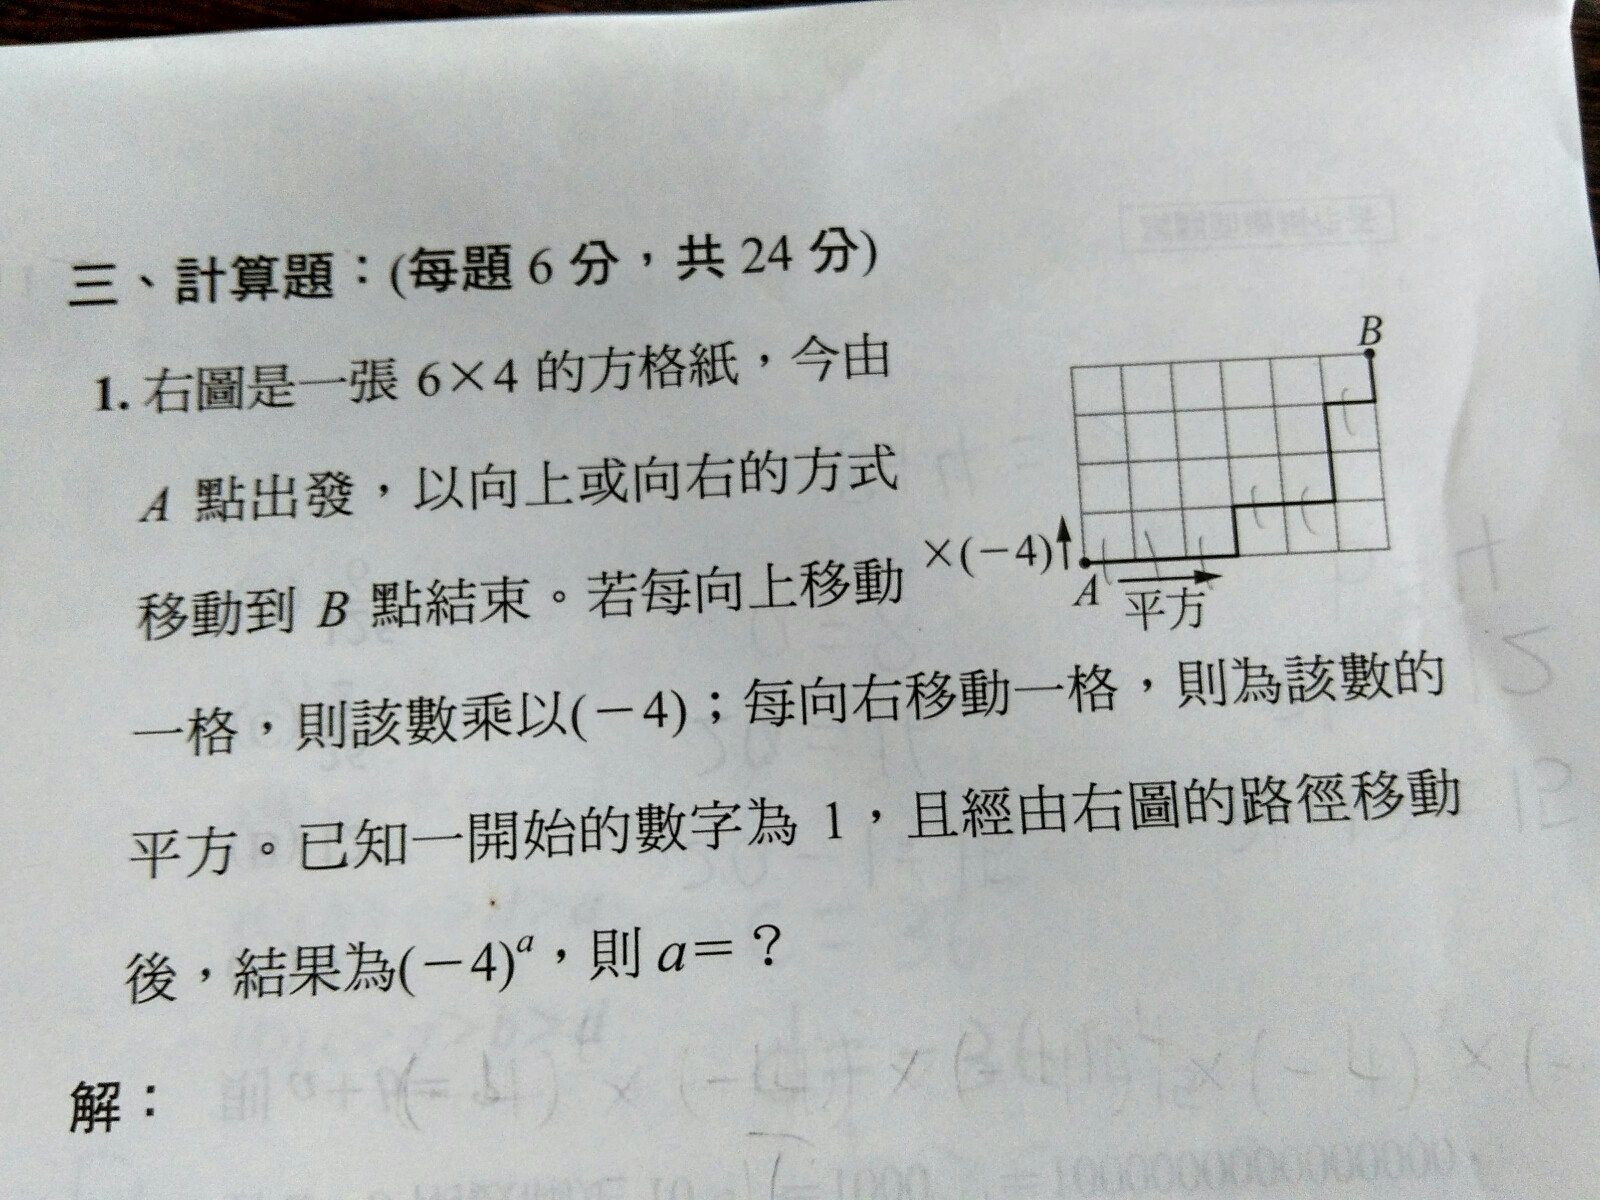 三、計算題：(每題 6 分，共 24 分)
1. 右圖是一張 6×4 的方格紙，今由
A 點出發，以向上或向右的方式
移動到 B 點結束。若每向上移動
一格，則該數乘以(－4)；每向右移動一格，則為該數的
平方。已知一開始的數字為 1，且經由右圖的路徑移動
後，結果為(－4)ᵃ，則 a＝？
B
×(－4)
A
平方
解：